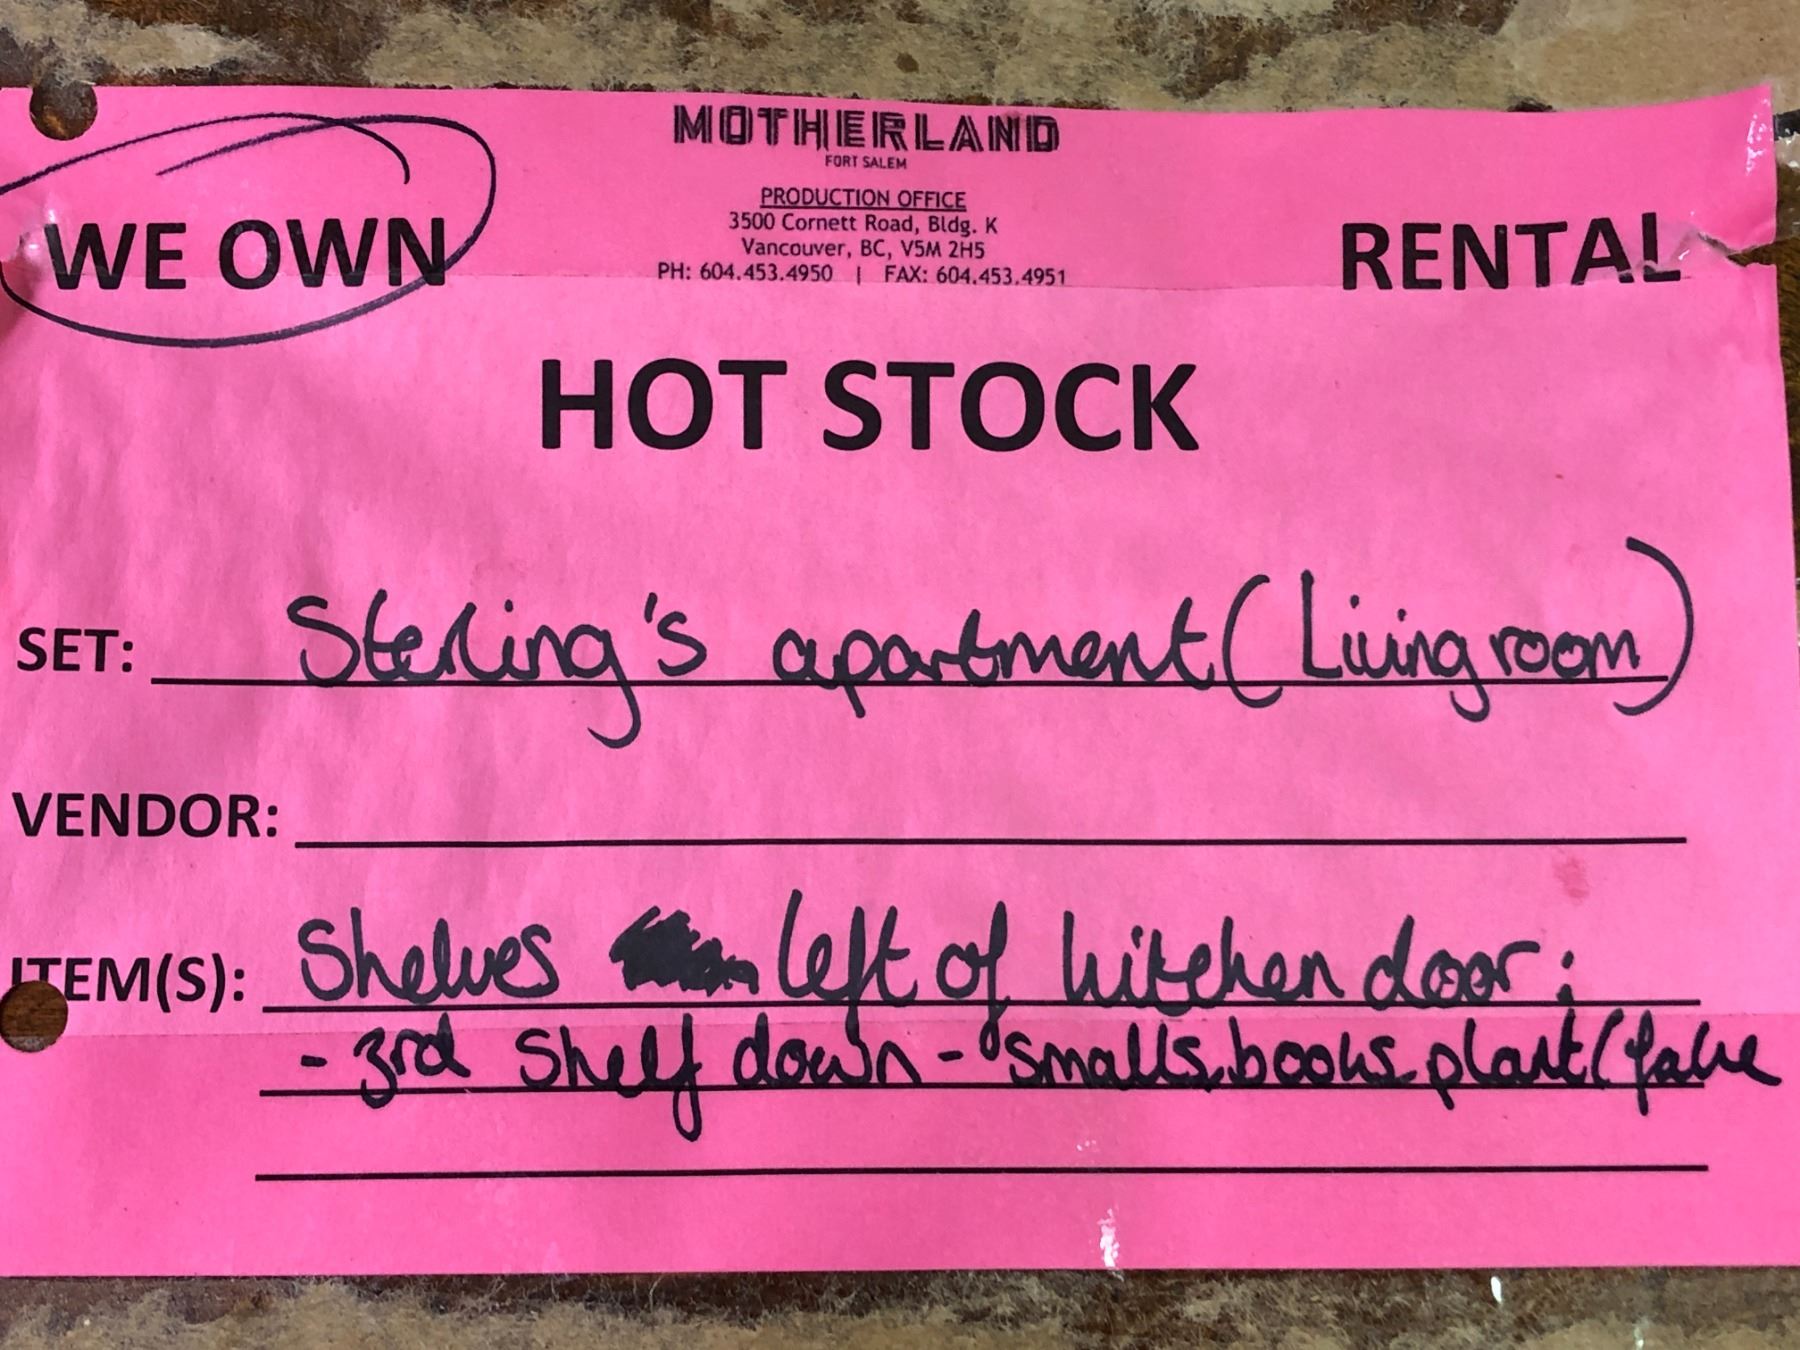 MOTHERLAND
FORT SALEM
PRODUCTION OFFICE
3500 Cornett Road, Bldg. K
Vancouver, BC, V5M 2H5
PH: 604.453.4950 | FAX: 604.453.4951
WE OWN
RENTAL
HOT STOCK
SET: Sterling's apartment (Living room)
VENDOR:
ITEM(S): Shelves left of kitchen door:
- 3rd shelf down - smalls, books, plant (fake